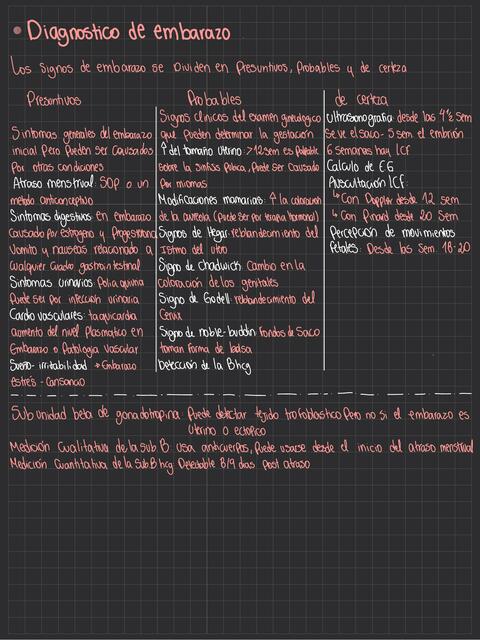 • Diagnostico de embarazo
Los signos de embarazo se dividen en Presuntivos, Probables y de certeza
Presuntivos
Sintomas generales del embarazo
inicial Pero Pueden ser causados
Por otras condiciones
Atraso menstrual: SOP o un
metodo anticonceptivo
Sintomas digestivos en embarazo
causado por estrogeno y Progesterona
Vomito y nauseas relacionado a
cualquier cuadro gastrointestinal
Sintomas urinarios: Polia quiuria
Puede ser por infeccion urinaria
Cardio vasculares: taquicardia
aumento del nivel Plasmatico en
Embarazo o Patologia vascular
Sueño-irritabilidad → Embarazo
estrés - Cansancio
Probables
Signos clinicos del examen ginecologico
que Pueden determinar la gestación
↑ del tamaño uterino: >12sem es Palpable
sobre la sinfisis Pubica, Puede ser Causado
Por miomas
Modificaciones mamarias: ↑ la coloracion
de la aureola (Puede ser por terapia hormonal)
Signos de Hegar: reblandecimiento del
Istmo del utero
Signo de chadwick: Cambio en la
coloración de los genitales
Signo de Godell: reblandecimiento del
Cervix
Signo de noble-buddin: Fondos de Saco
toman Forma de bolsa
Detección de la Bhcg
de certeza
Ultrasonografia: desde las 4½ sem
se ve el saco - 5 sem el embrión
6 semanas hay LCF
Calculo de EG
Auscultación LCF:
↳ Con Doppler desde 12 sem
↳ Con Pinard desde 20 Sem
Percepción de movimientos
Fetales: Desde las Sem. 18-20
Sub unidad beta de gonadotropina: Puede detectar tejido trofoblastico Pero no si el embarazo es
Uterino o ectopico
Medición Cualitativa de la sub B: usa anticuerpos, Puede usarse desde el inicio del atraso menstrual
Medición Cuantitativa de la Sub.B hcg Detectable 8/9 dias post atraso